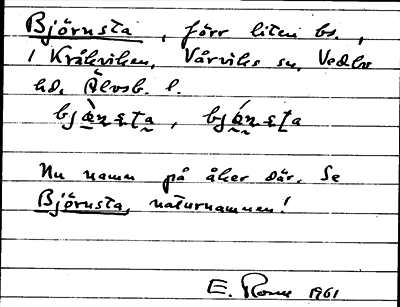 Björnsta, förr liten bs.,
i Kråkviken, Vårviks sn, Vedbo
hd, Älvsb. l.
bjö̀nsta, bjö́nsta
Nu namn på åker där. Se
Björnsta, naturnamnen!
E. 1961